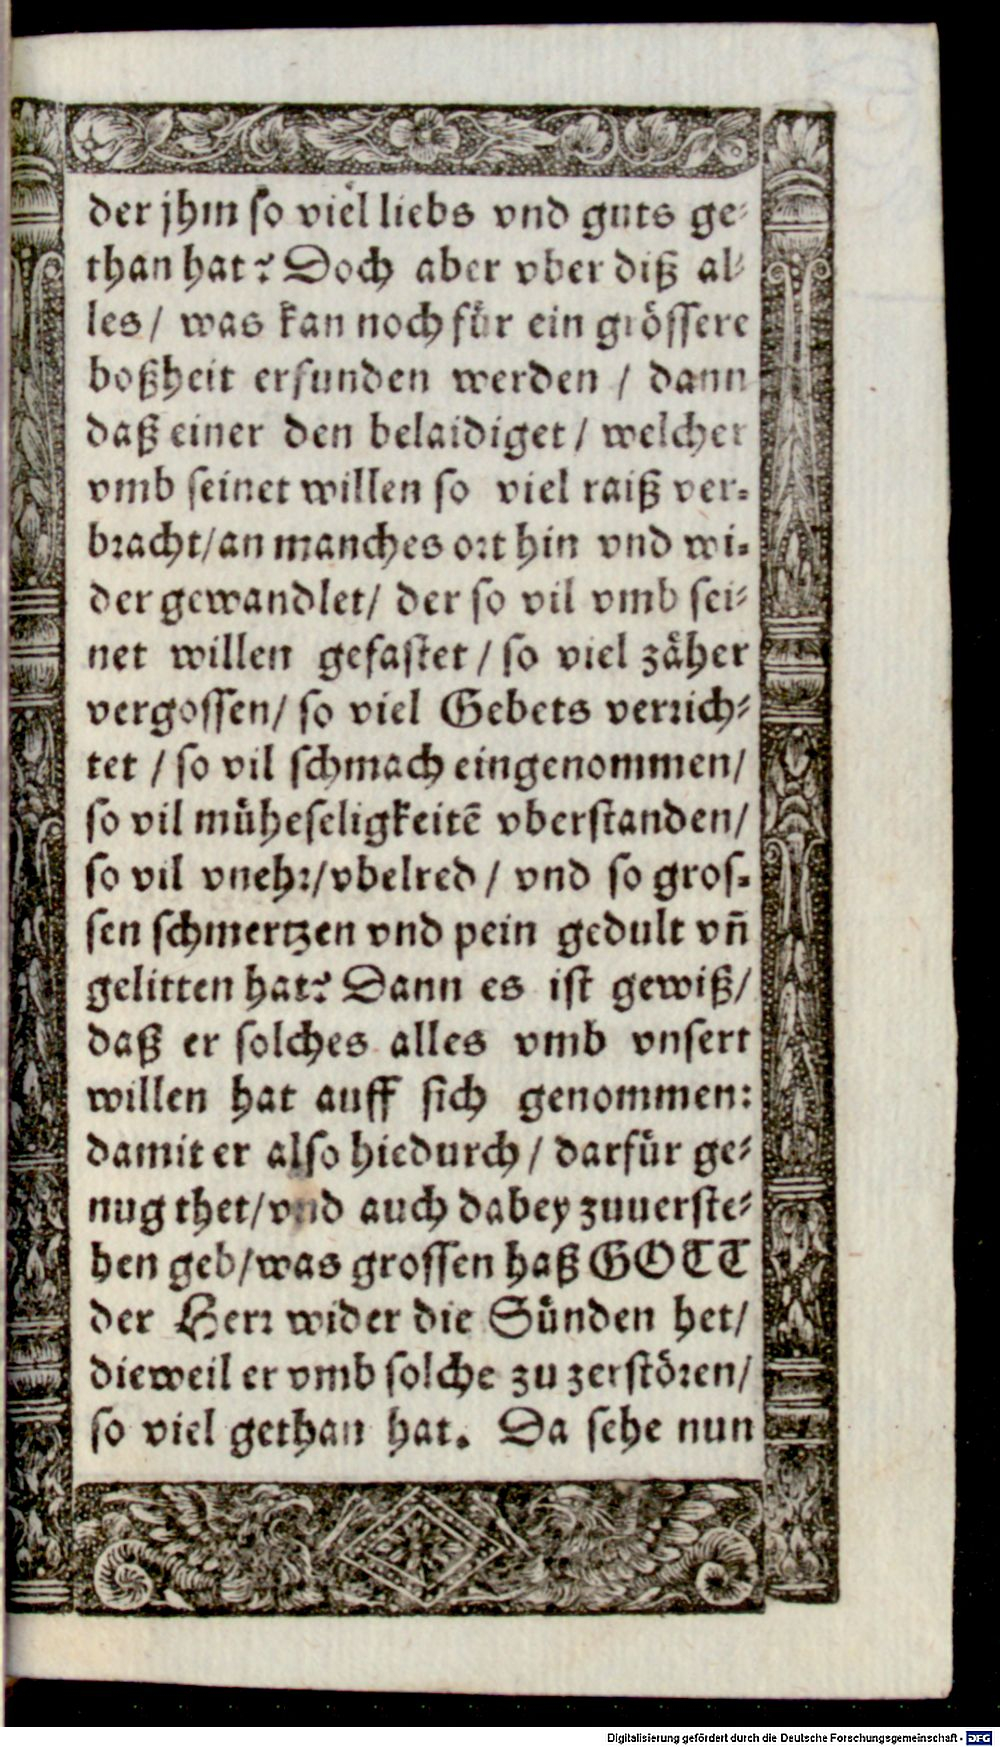 der jhm so viel liebs vnd guts ge-
than hat? Doch aber vber diß al-
les / was kan noch für ein grössere
boßheit erfunden werden / dann
daß einer den belaidiget / welcher
vmb seinet willen so viel raiß ver-
bracht / an manches ort hin vnd wi-
der gewandlet / der so vil vmb sei-
net willen gefastet / so viel zäher
vergossen / so viel Gebets verrich-
tet / so vil schmach eingenommen /
so vil müheseligkeitē vberstanden /
so vil vnehr / vbelred / vnd so gros-
sen schmertzen vnd pein gedult vñ
gelitten hat? Dann es ist gewiß /
daß er solches alles vmb vnsert
willen hat auff sich genommen:
damit er also hiedurch / darfür ge-
nug thet / vnd auch dabey zuuerste-
hen geb / was grossen haß GOTT
der Herr wider die Sünden het /
dieweil er vmb solche zu zerstören /
so viel gethan hat. Da sehe nun
Digitalisierung gefördert durch die Deutsche Forschungsgemeinschaft - DFG